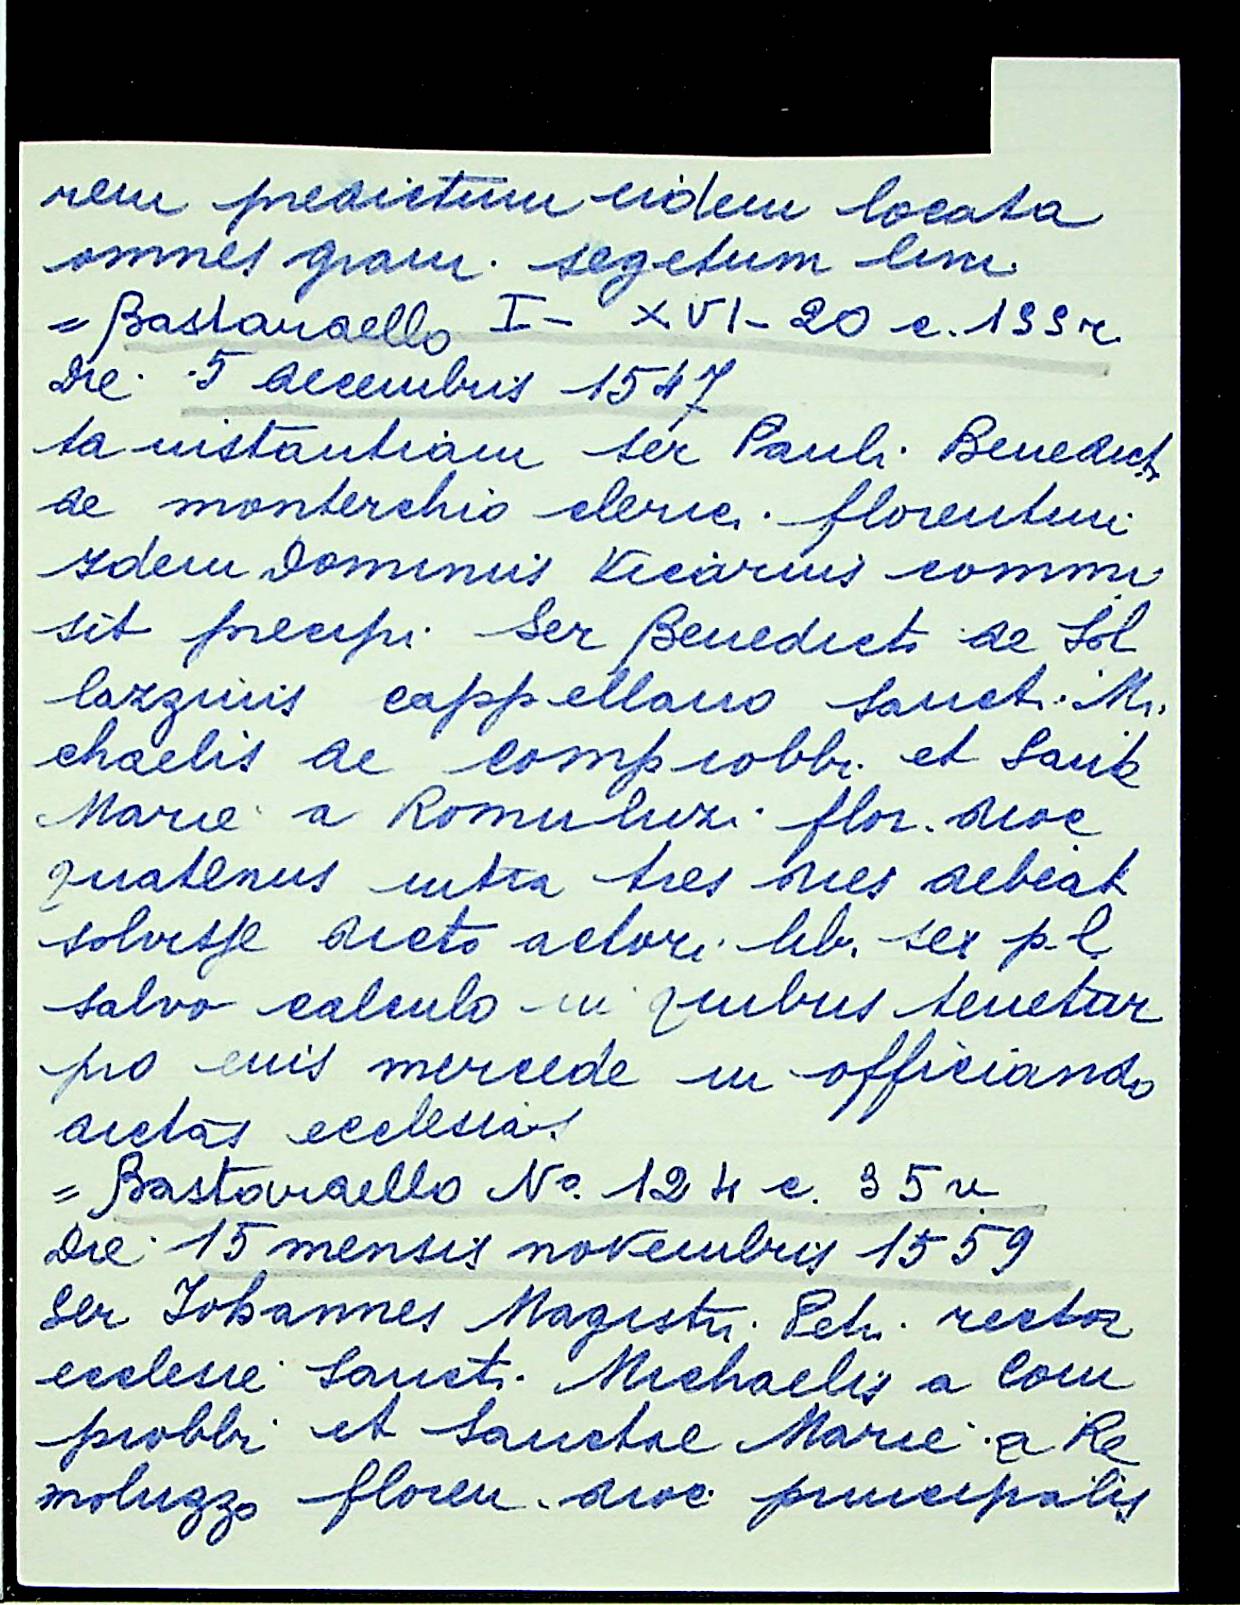 rem predictum eidem locata
omnes gram. segetum lini
= Bastardello I- XVI- 20 c. 199 r.
Die 5 decembris 1547
ta instantiam ser Pauli Benedicti
de monterchio cleric. florentini
Idem Dominus Vicarius commi
sit precipi Ser Benedicto de Sol
lazzinis cappellano Sancti Mi
chaelis de comprobbi et Sante
Marie a Romuluzi flor. dioc
quatenus intra tres dies debeat
solvisse dicto actori lib. sex p. l.
salvo calculo in quibus tenetur
pro euis mercede in officiando
dictas ecclesias
= Bastardello No. 124 c. 35 v
Die 15 mensis novembris 1559
Ser Johannes Magistri Petri rector
ecclesie Sancti Michaelis a Com
probbi et Sanctae Marie a Re
moluzzo floren. dioc principalis